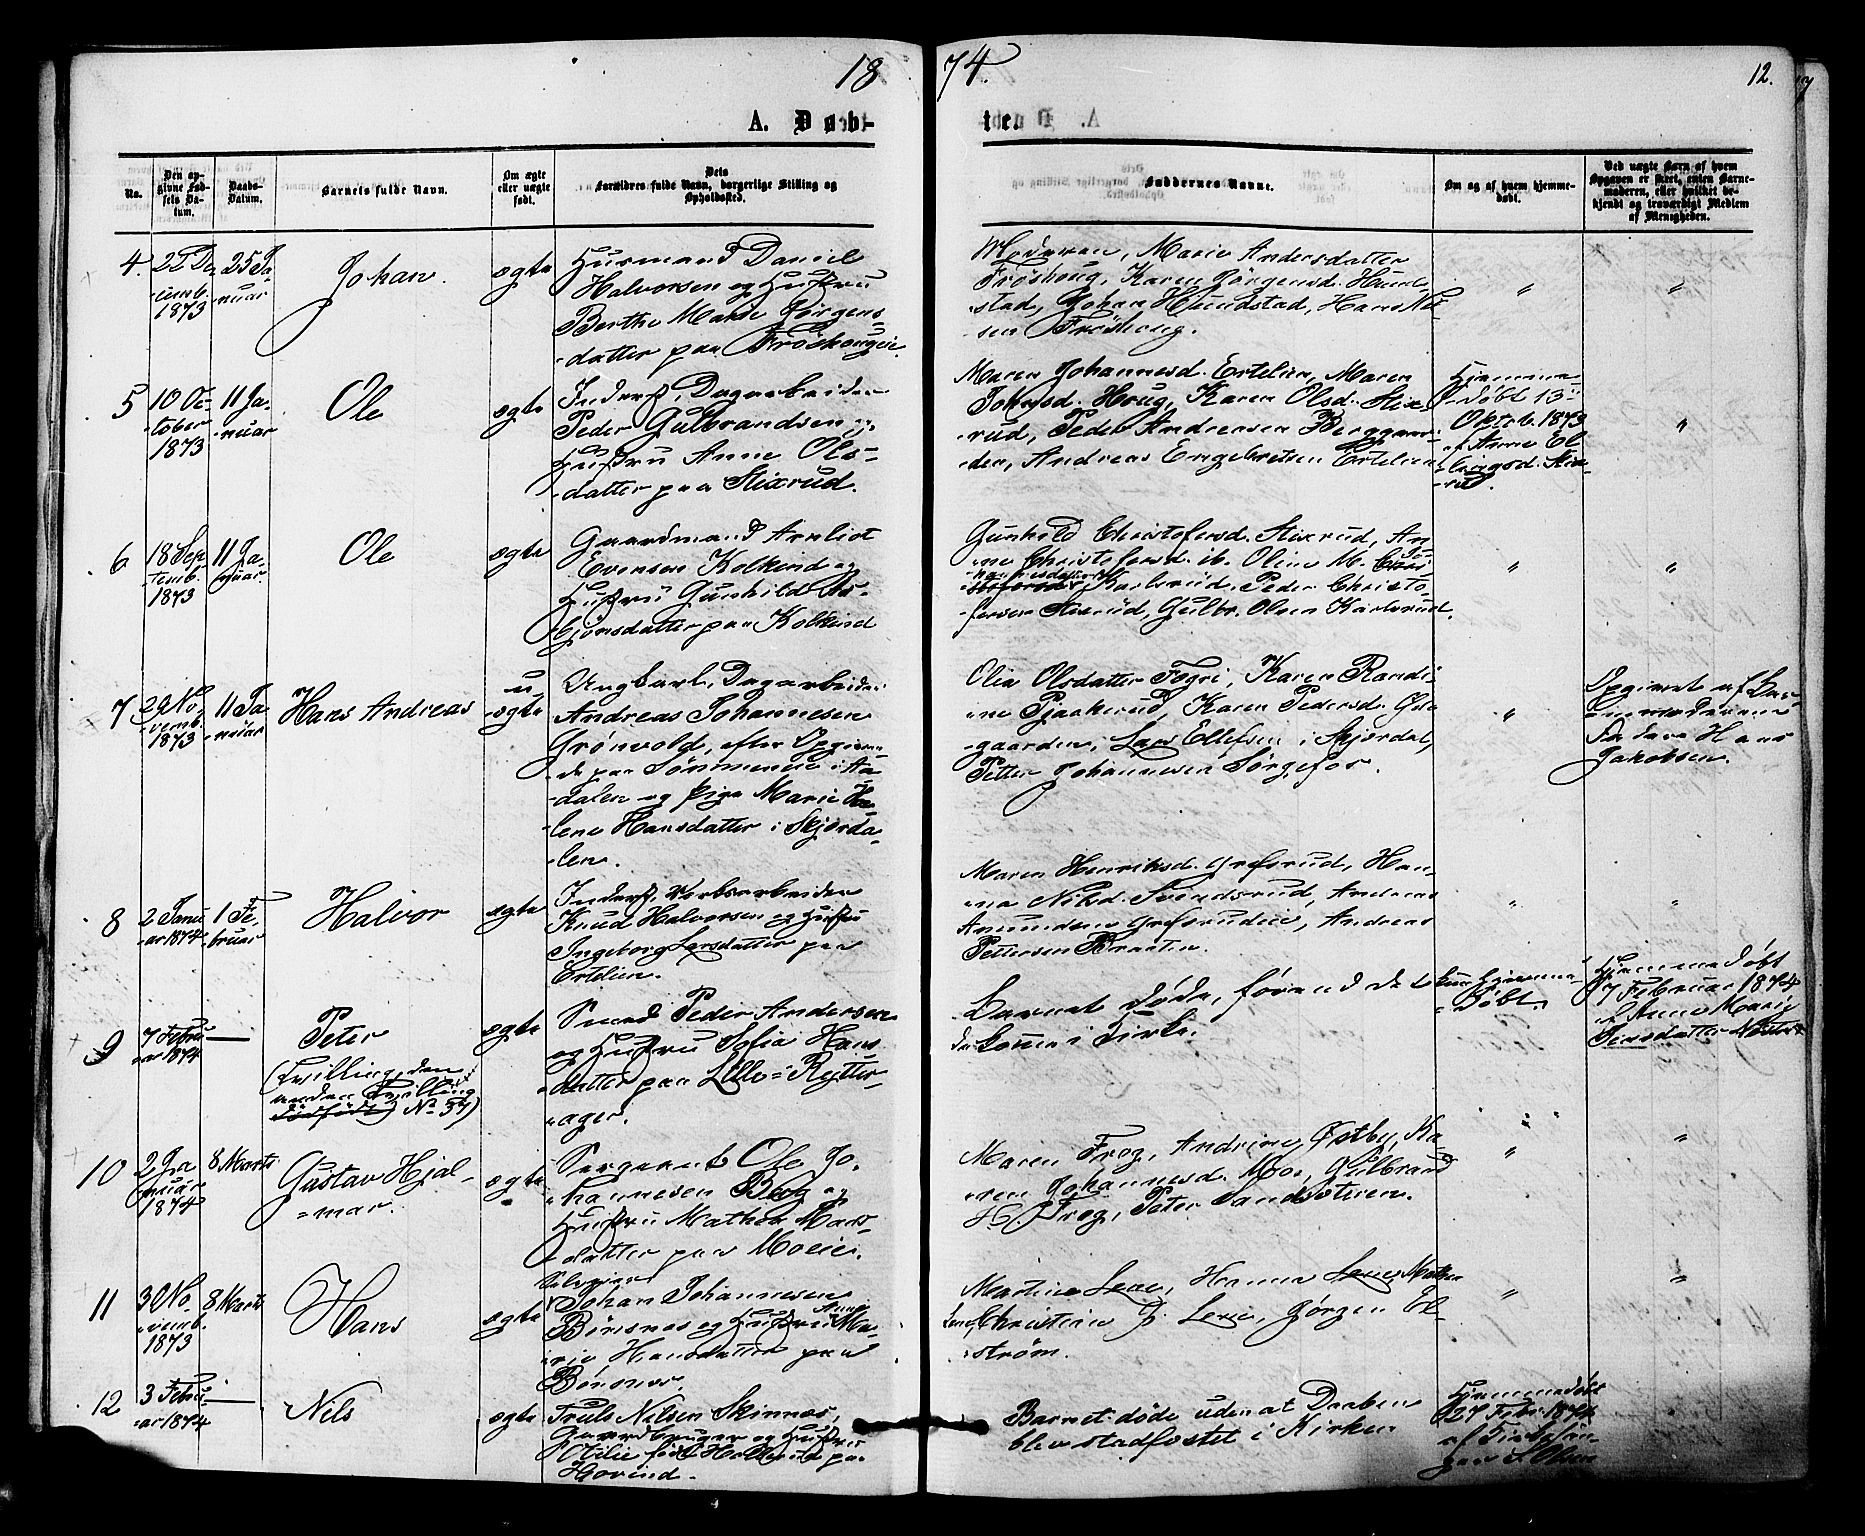 18
74.
12.
A. Døb-
te
No.
Den op-
givne Fød-
sels Da-
tum.
Daabs-
Datum.
Barnets fulde Navn.
Om ægte
eller uægte
født.
Dets
Forældres fulde Navn, borgerlige Stilling og
Opholdssted.
Faddernes Navne.
Om og af hvem hjemme-
døbt.
Ved uægte Barn af hvem
Opgaven er skeet, enten Barne-
moderen, eller hvilket be-
kjendt og troværdigt Medlem
af Menigheden.
4.
De-
-cemb.
1873
25 Ja-
-nuar
Johan.
ægte
Husmand Daniel
Halvorsen og Hustru
Berthe Marie Jørgens-
-datter paa Frøshougeie.
Moderen, Marie Andersdatter
Frøshoug, Karen Jørgensd. Hund-
stad, Johan Hundstad, Hans
-sen Frøshoug.
"
"
5
10 Oc-
-tober
1873
11 Ja-
-nuar
Ole
ægte
Inderst, Dagarbeider
Peder Gulbrandsen og
Hustru Anne Ols-
datter paa Stixrud.
Maren Johannesd. Ertelien, Maren
Johnsd. Haug, Karen Olsd. Stix-
-rud, Peder Andersen Berggaar-
den, Andreas Engebretsen Ertelien
Hjemme-
døbt 13
Oktob. 1873
af Anne
Stix-
-rud.
"
6
18 Sep-
-temb.
1873
11 Ja-
-nuar
Ole
ægte
Gaardmand Arnliot
Evensen Kolkind og
Hustru Gunhild As-
bjørnsdatter paa Kolkind
Gunhild Christofersd. Stixrud, An-
-ne Christofersd. ib. Oline M. Jo-
-hannesdatter Karlsrud. Peder Christo-
fersen Stixrud, Gulbr. Olsen Karlsrud.
"
"
7
29 No-
vemb.
1873
11 Ja-
-nuar
Hans Andreas
u-
-ægte
Ungkarl, Dagarbeider
Andreas Johannesen
Grønvold, efter Opgiven-
de paa Sømmenen i Aa-
dalen og Pige Marie He-
lene Hansdatter i Skjørda-
-len.
Olia Olsdatter Togri, Karen Randi-
-ne Pjaakerud, Karen Pedersd.
-gaarden, Lars Ellefsen i Skjørdal,
Petter Johannesen Sørgefos.
"
Opgivet af Bar-
nemoderens
Fader Hans
Jakobsen.
8
2 Janu-
-ar 1874
1 Fe-
-bruar
Halvor
ægte
Inderst, Verksarbeider
Knud Halvorsen og Hustru
Ingeborg Larsdatter paa
Ertelien.
Maren Henriksd. Grefsrud, Han-
-na Nilsd. Svendsrud, Andreas
Amundsen Grefsrudeie, Andreas
Pettersen Braaten.
"
"
9
7 Febru-
-ar 1874
—
Peter
(Tvilling, den
anden Tvilling
dødfødt) No 37)
ægte
Smed Peder Andersen
og Hustru Sofia Hans-
datter paa Lille-Rytter-
-ager.
Barnet døde, førend det
kom i Kirke.
kun hjemme-
døbt.
Hjemmedøbt
7 Februar 1874
af Anne Marie
Jensdatter
10
2 Ja-
nuar
1874
8 Marts
Gustav Hjal-
=mar.
ægte
Sergeant Ole Jo-
hannesen Berg og
Hustru Mathea Mars-
-datter paa Moeie.
Maren Frog, Andrine Østby, Ka-
ren Johannesd. Moe, Gulbrand
H. Frog, Peter Sandsstuen.
"
"
11
3 No-
vemb.
1873
8 Marts
Hans
ægte
Selveier
Johan Johannesen
Bønsnes og Hustru Anne Ma-
rie Hansdatter paa
Bønsnes.
Martine Lexe, Hanna Lexe, Mathea
Lexe, Christine J. Lexe, Jørgen El-
strøm.
"
"
12
3 Febru-
-ar 1874
—
Nils
ægte
Truls Nilsen Skinnæs,
Gaardbruger og Hustru
Otilie født paa
Hovind.
Barnet døde uden at Daaben
blev stadfæstet i Kirken
Hjemmedøbt
27 Febr. 1874
af Kirkesan-
ger Olsen